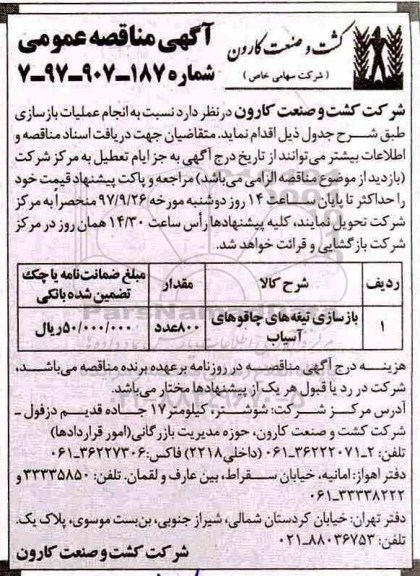 کشت و صنعت کارون
( شرکت سهامی خاص )
آگهی مناقصه عمومی
شماره ۱۸۷-۹۰۷-۹۷-۷
شرکت کشت و صنعت کارون در نظر دارد نسبت به انجام عملیات بازسازی
طبق شرح جدول ذیل اقدام نماید. متقاضیان جهت دریافت اسناد مناقصه و
اطلاعات بیشتر می‌توانند از تاریخ درج آگهی به جز ایام تعطیل به مرکز شرکت
(بازدید از موضوع مناقصه الزامی می‌باشد) مراجعه و پاکت پیشنهاد قیمت خود
را حداکثر تا پایان ساعت ۱۴ روز دوشنبه مورخه ۹۷/۹/۲۶ منحصراً به مرکز
شرکت تحویل نمایند، کلیه پیشنهادها رأس ساعت ۱۴/۳۰ همان روز در مرکز
شرکت بازگشایی و قرائت خواهد شد.
ردیف شرح کالا مقدار مبلغ ضمانت‌نامه یا چک تضمین شده بانکی
۱ بازسازی تیغه‌های چاقوهای آسیاب ۸۰۰عدد ۵۰/۰۰۰/۰۰۰ریال
هزینه درج آگهی مناقصه در روزنامه برعهده برنده مناقصه می‌باشد،
شرکت در رد یا قبول هر یک از پیشنهادها مختار می‌باشد.
آدرس مرکز شرکت: شوشتر، کیلومتر۱۷ جاده قدیم دزفول ـ
شرکت کشت و صنعت کارون، حوزه مدیریت بازرگانی(امور قراردادها)
تلفن: ۲-۳۶۲۲۲۰۷۱-۰۶۱ (داخلی۲۲۱۸) فاکس:۳۶۲۲۷۳۰۶-۰۶۱
دفتر اهواز: امانیه، خیابان سقراط، بین عارف و لقمان. تلفن: ۳۳۳۳۵۸۵۰ و
۳۳۳۳۸۲۲۲-۰۶۱
دفتر تهران: خیابان کردستان شمالی، شیراز جنوبی، بن‌بست موسوی، پلاک یک.
تلفن: ۸۸۰۳۶۷۵۳-۰۲۱
شرکت کشت و صنعت کارون